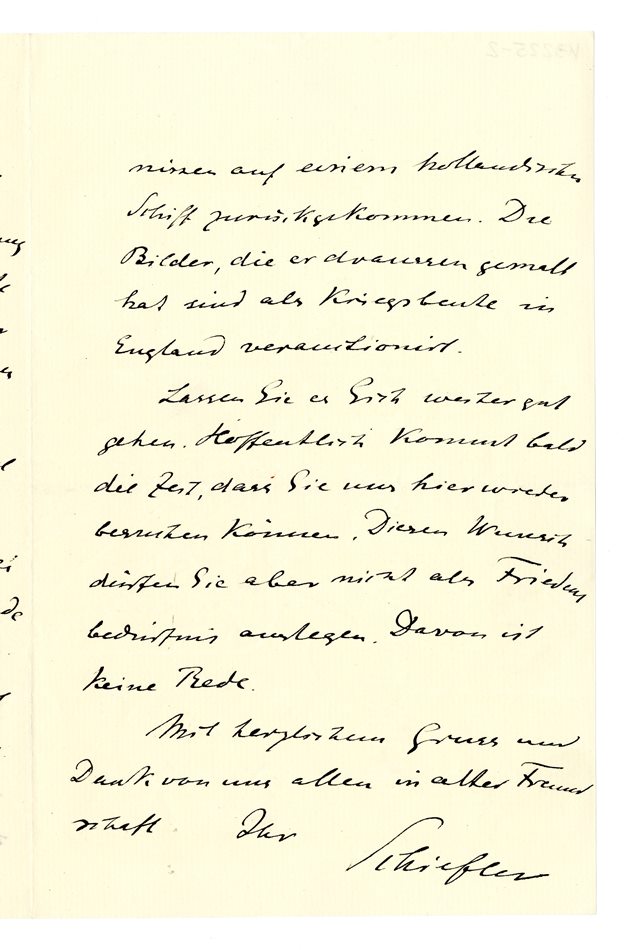 nissen auf einem holländischen
Schiff zurückgekommen. Die
Bilder, die er draussen gemalt
hat sind als Kriegsbeute in
England verauktionirt.
Lassen Sie es Sich weiter gut
gehen. Hoffentlich kommt bald
die Zeit, dass Sie uns hier wieder
besuchen können. Diesen Wunsch
dürfen Sie aber nicht als Friedens
bedürfnis auslegen. Davon ist
keine Rede.
Mit herzlichem Gruss und
Dank von uns allen in alter Freund
schaft Ihr
Schiefler